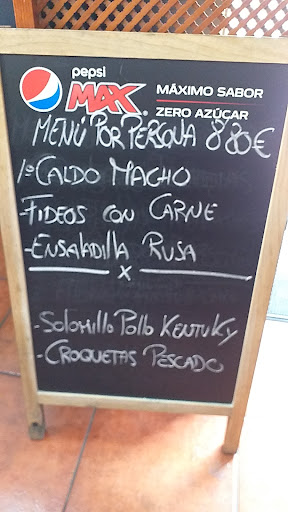 pepsi
MAX
MÁXIMO SABOR
ZERO AZÚCAR
MENÚ POR PERSONA 8,80€
1º CALDO MACHO
-FIDEOS CON CARNE
-ENSALADILLA RUSA
x
-Solomillo Pollo KENTUKY
-CROQUETAS PESCADO